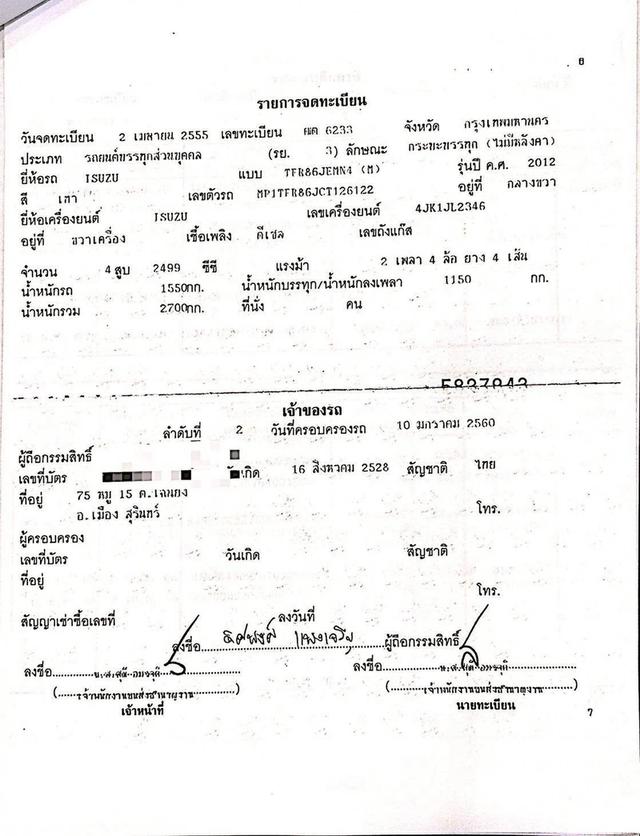 8
รายการจดทะเบียน
วันจดทะเบียน 2 เมษายน 2555 เลขทะเบียน 6233 จังหวัด กรุงเทพมหานคร
ประเภท รถยนต์บรรทุกส่วนบุคคล (รย. 3) ลักษณะ กระบะบรรทุก (ไม่มีหลังคา)
ยี่ห้อรถ ISUZU แบบ TFR86JEMN4 (M) รุ่นปี ค.ศ. 2012
สี เทา เลขตัวรถ MP1TFR86JCT126122 อยู่ที่ กลางขวา
ยี่ห้อเครื่องยนต์ ISUZU เลขเครื่องยนต์ 4JK1JL2346
อยู่ที่ ขวาเครื่อง เชื้อเพลิง ดีเซล เลขถังแก๊ส
จำนวน 4 สูบ 2499 ซีซี แรงม้า 2 เพลา 4 ล้อ ยาง 4 เส้น
น้ำหนักรถ 1550กก. น้ำหนักบรรทุก/น้ำหนักลงเพลา 1150 กก.
น้ำหนักรวม 2700กก. ที่นั่ง คน
เจ้าของรถ
ลำดับที่ 2 วันที่ครอบครองรถ 10 มกราคม 2560
ผู้ถือกรรมสิทธิ์
เลขที่บัตร วันเกิด 16 สิงหาคม 2528 สัญชาติ ไทย
ที่อยู่ 75 หมู่ 15 ต.เฉนียง
อ.เมือง สุรินทร์ โทร.
ผู้ครอบครอง
เลขที่บัตร วันเกิด สัญชาติ
ที่อยู่
โทร.
สัญญาเช่าซื้อเลขที่ ลงวันที่
ลงชื่อ ผู้ถือกรรมสิทธิ์
ลงชื่อ ลงชื่อ
เจ้าหน้าที่ นายทะเบียน
7